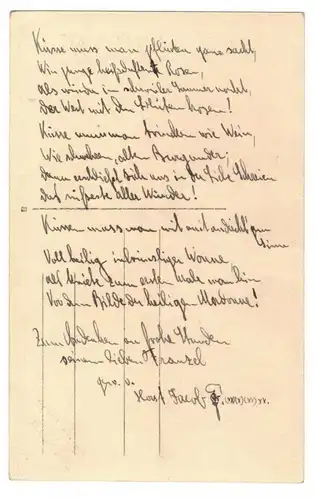 Küsse muss man pflücken ganz sacht,
Wie junge Rosen,
als würde in schwüler Sommernacht,
der West mit den Blüten kosen!
Küsse muss man trinken wie Wein,
Wie schweren, alten Burgunder;
dann erschließt sich uns in der Liebe Schrein
das süsseste aller Wunder!
Küssen muss man mit andächt'gem Sinn
Voll heilig inbrünstiger Wonne,
als kniete zum ersten Male man hin
Vor dem Bilde der heiligen Madonne!
Zum Gedenken an frohe Stunden
seinem lieben Franzel
Horst Jacob